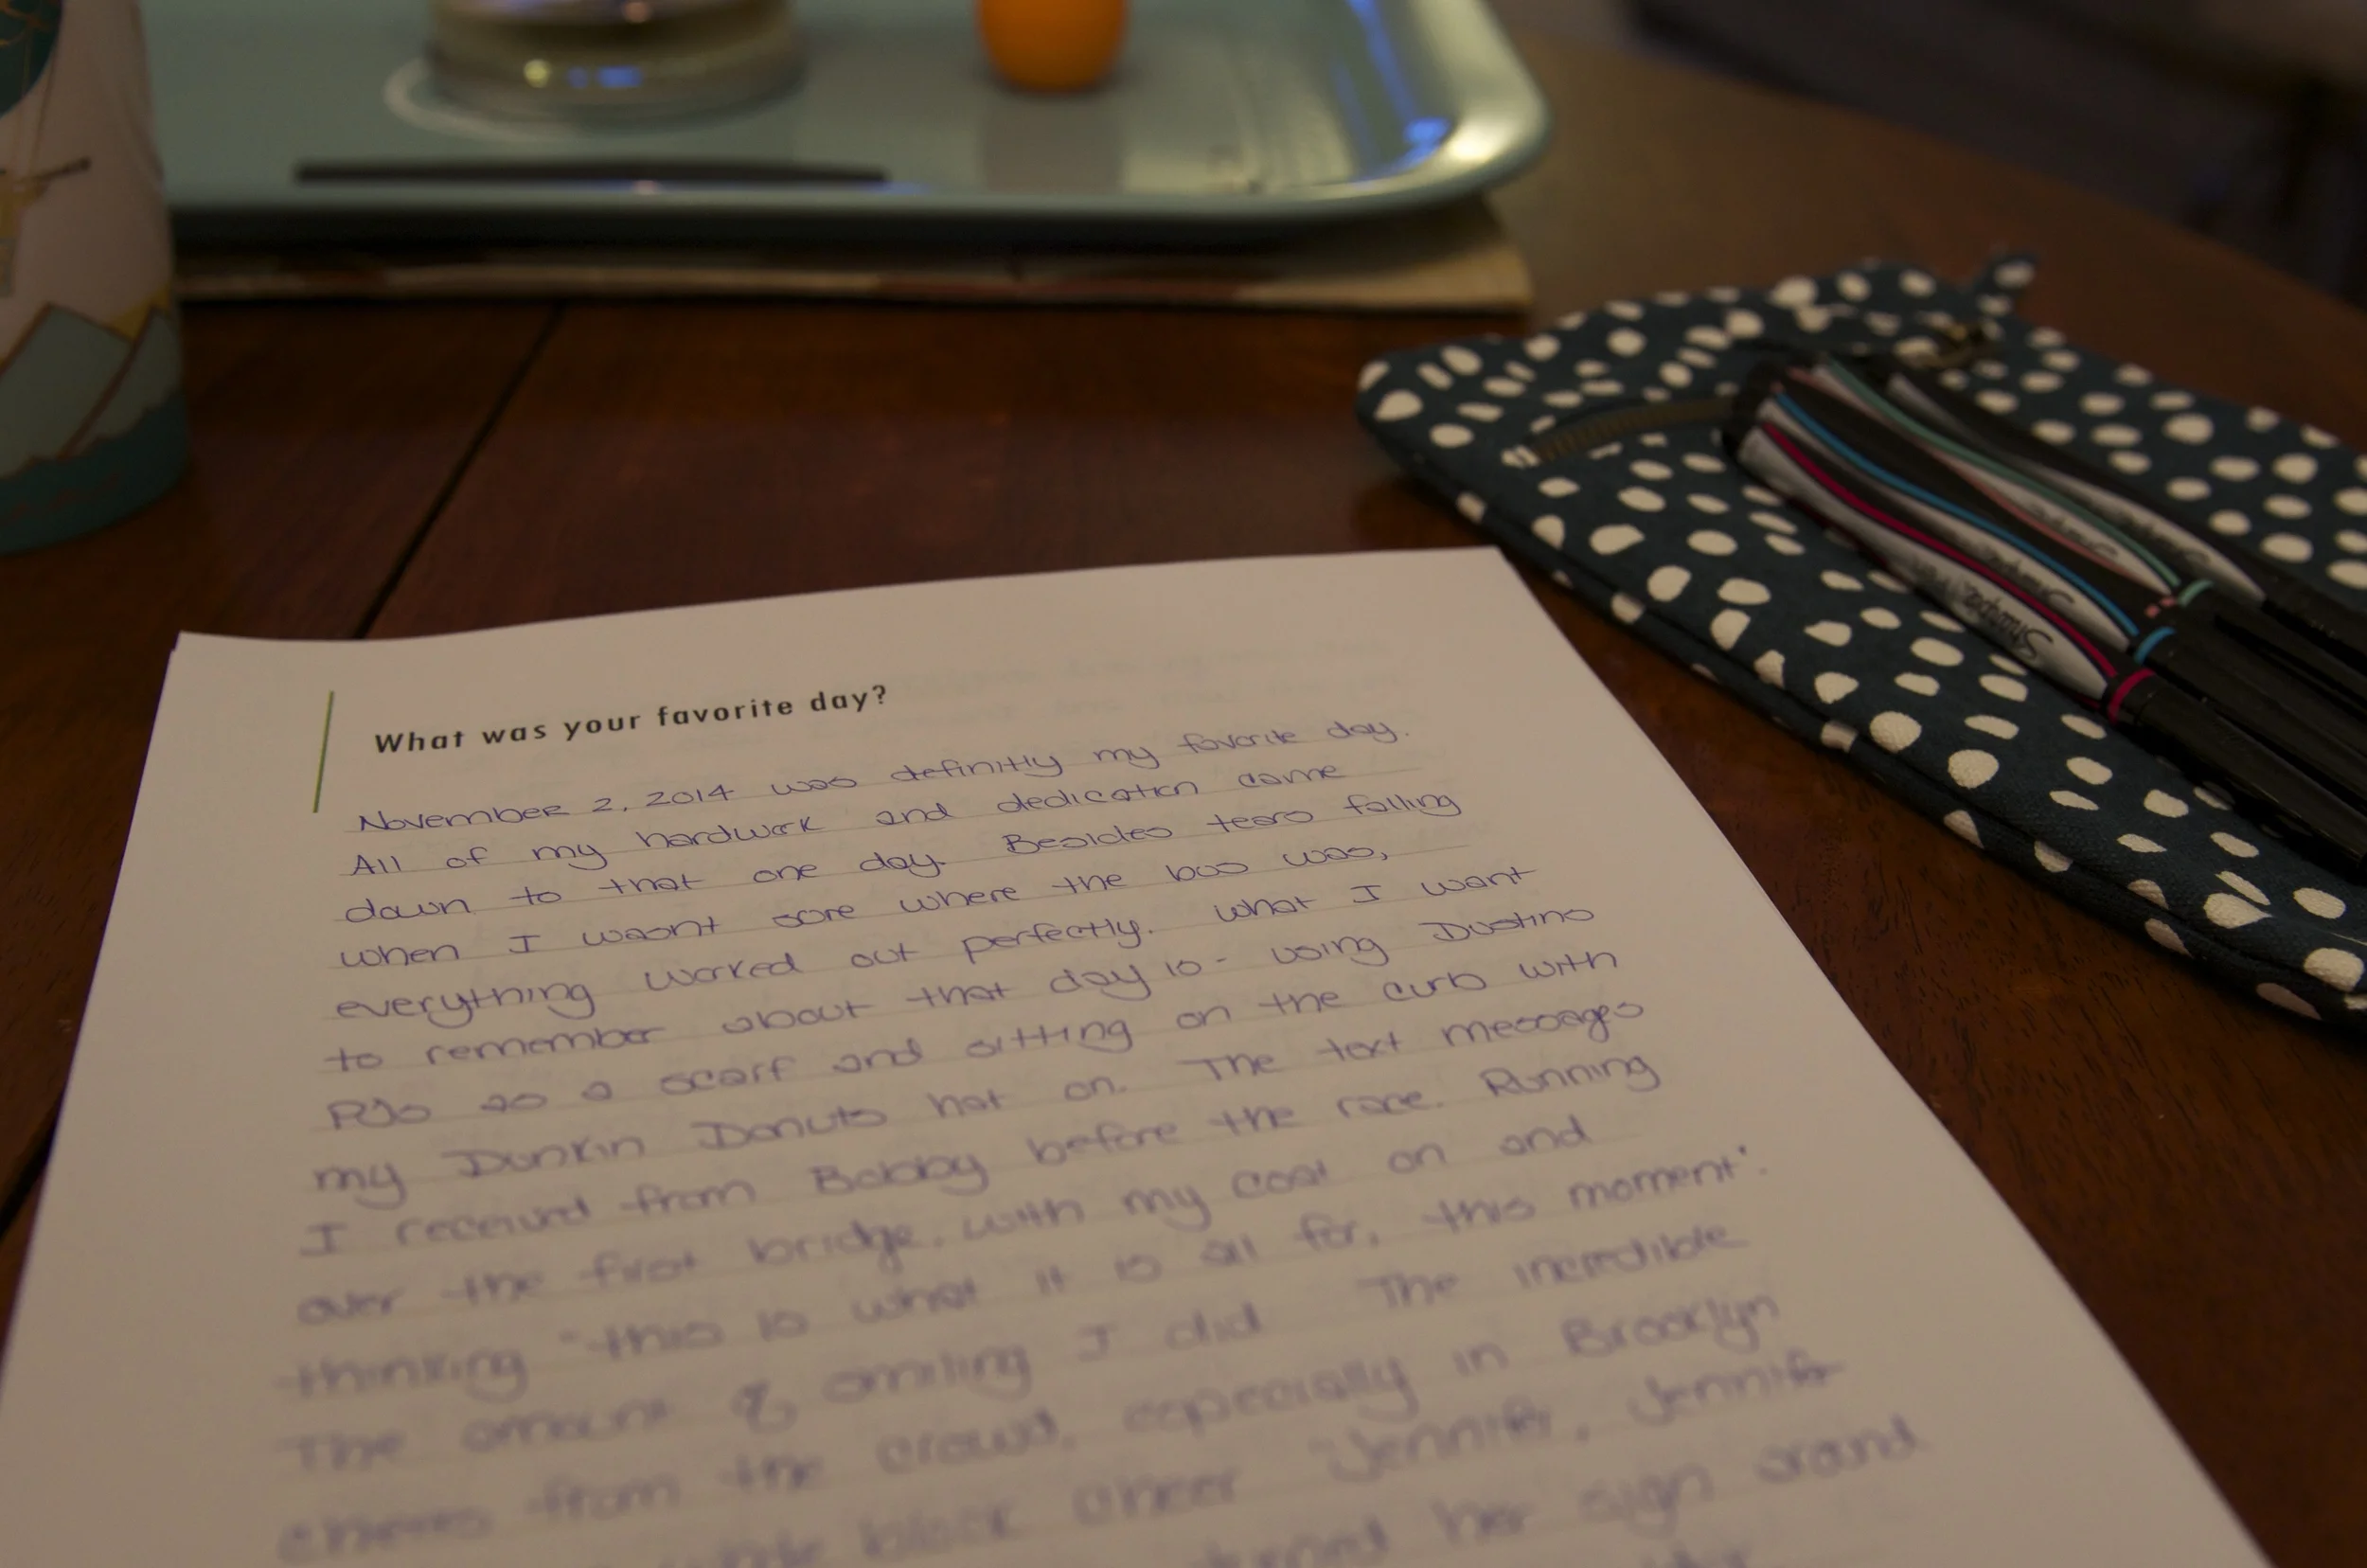 What was your favorite day?
November 2, 2014 was definitly my favorite day.
All of my hardwork and dedication came
down to that one day. Besides tears falling
when I wasnt sore where the bus was,
everything worked out perfectly. What I want
to remember about that day is - using Dustins
PJs as a scarf and sitting on the curb with
my Dunkin Donuts hat on. The text messages
I received from Bobby before the race. Running
over the first bridge, with my coat on and
thinking "this is what it is all for, this moment".
The amount of smiling I did. The incredible
cheers from the crowd, especially in Brooklyn
block cheer "Jennifer, Jennifer
turned her sign around
Sharpie
Sharpie
Sharpie
Sharpie